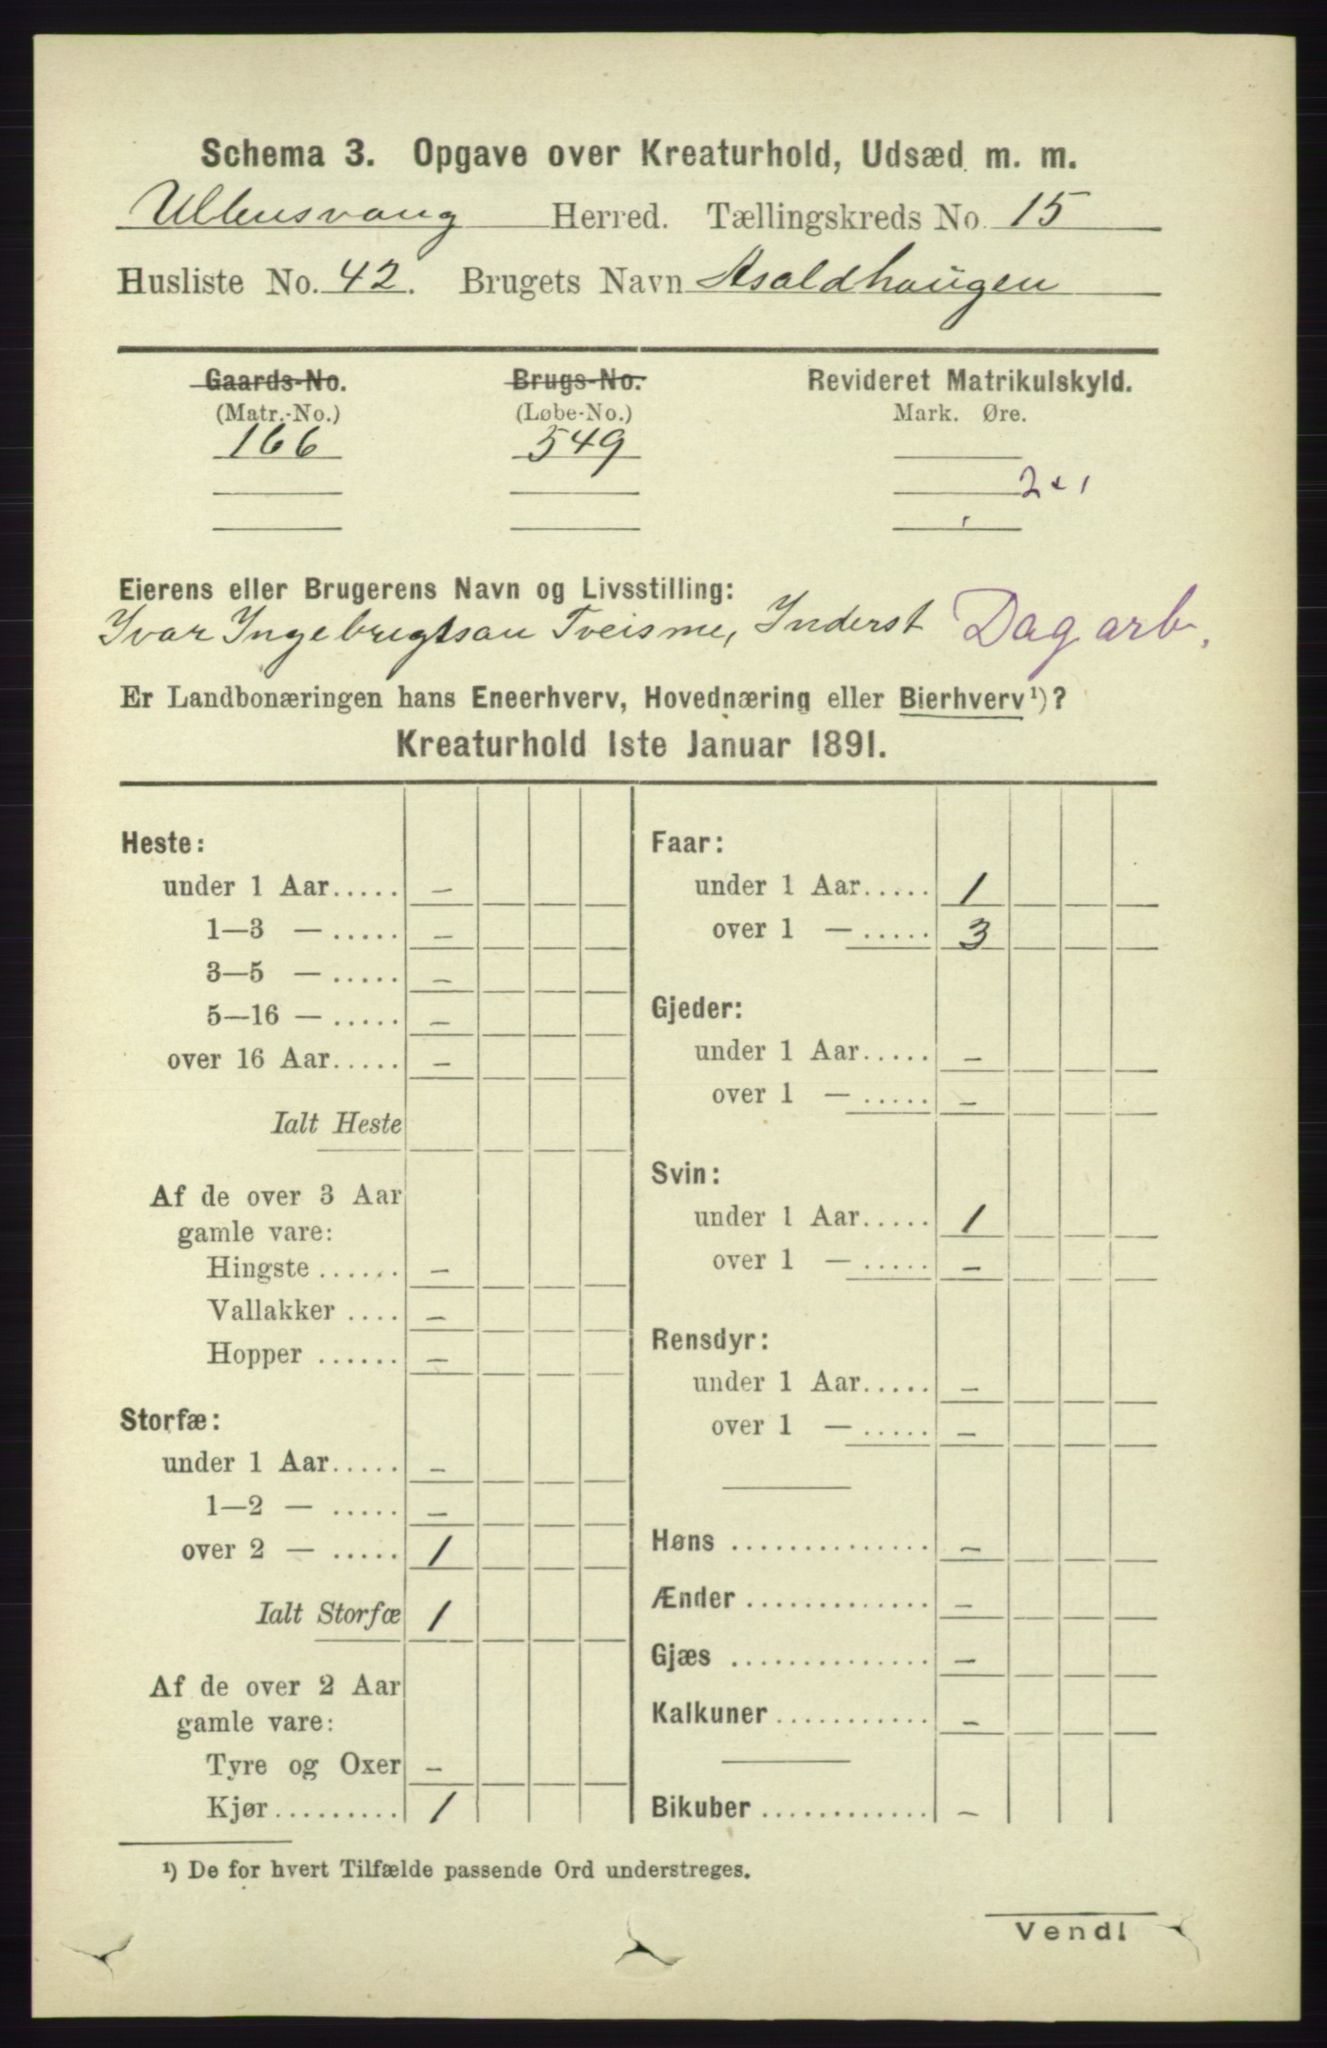 Schema 3. Opgave over Kreaturhold, Udsæd m. m.
Ullensvang Herred. Tællingskreds No. 15
Husliste No. 42. Brugets Navn Asaldhaugen
Gaards-No. Brugs-No. Revideret Matrikulskyld.
(Matr.-No.) (Løbe-No.) Mark. Øre.
166 549
2 + 1
Eierens eller Brugerens Navn og Livsstilling:
Ivar Ingebrigtsan Tveisme, Inderst Dagarb.
Er Landbonæringen hans Eneerhverv, Hovednæring eller Bierhverv¹)?
Kreaturhold 1ste Januar 1891.
Heste:
under 1 Aar..... –
1—3 — ..... –
3—5 — ..... –
5—16 — ..... –
over 16 Aar..... –
Ialt Heste
Af de over 3 Aar
gamle vare:
Hingste ...... –
Vallakker .... –
Hopper ...... –
Storfæ:
under 1 Aar..... –
1—2 — ..... –
over 2 — ..... 1
Ialt Storfæ 1
Af de over 2 Aar
gamle vare:
Tyre og Oxer –
Kjør......... 1
Faar:
under 1 Aar..... 1
over 1 — ..... 3
Gjeder:
under 1 Aar..... –
over 1 — ..... –
Svin:
under 1 Aar..... 1
over 1 — ..... –
Rensdyr:
under 1 Aar..... –
over 1 — ..... –
Høns .............. –
Ænder ............. –
Gjæs .............. –
Kalkuner ........... –
Bikuber ............ –
¹) De for hvert Tilfælde passende Ord understreges.
Vend!